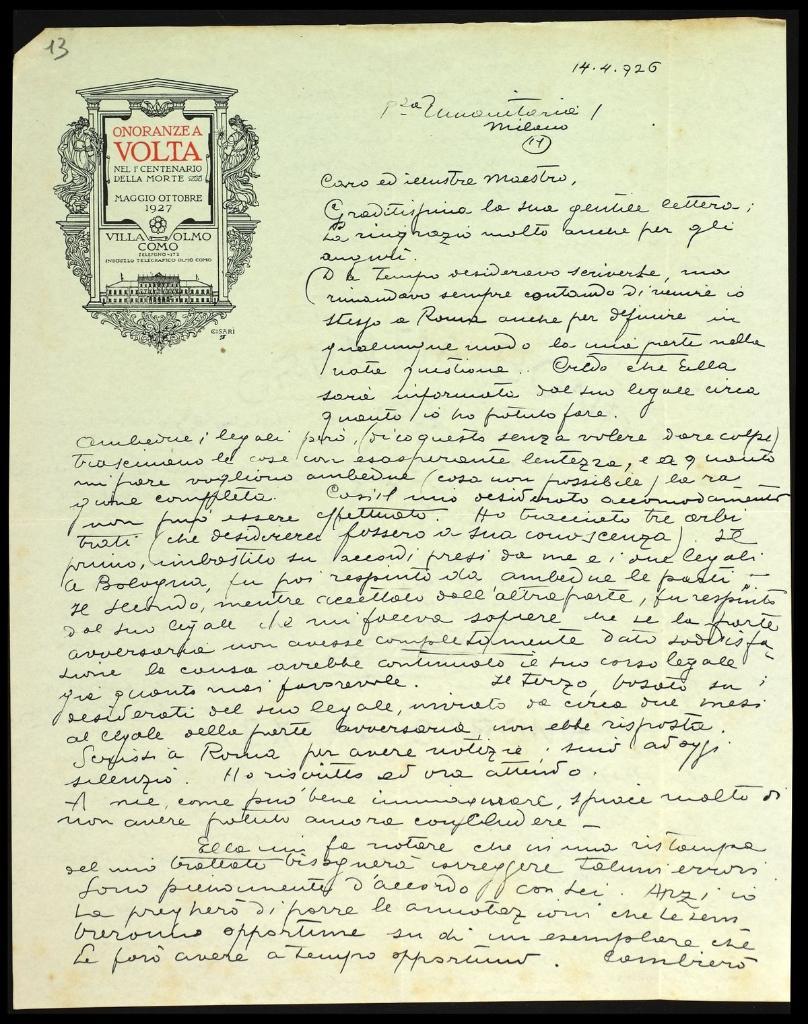 13
14.4.926
ONORANZE A
VOLTA
NEL 1° CENTENARIO
DELLA MORTE
MAGGIO OTTOBRE
1927
VILLA OLMO
COMO
TELEFONO
INDIRIZZO TELEGRAFICO OLMO COMO
CISARI
Umanitaria 1
Milano
(17)
Caro ed illustre Maestro,
Graditissima la sua gentile lettera;
La ringrazio molto anche per gli
auguri.
Da tempo desideravo scriverle, ma
rimandavo sempre contando di venire io
stesso a Roma anche per definire in
qualunque modo la mia parte nella
nota questione. Credo che Ella
sarà informata dal suo legale circa
quanto io ho potuto fare.
Ambedue i legali però, (dico questo senza volere dare colpe)
trascinano le cose con esasperante lentezza, e a quanto
mi pare vogliono ambedue (cosa non possibile) la ra
gione completa. Così il mio desiderato accomodamento
non può essere effettuato. Ho tracciato tre arbi
trati (che desidererei fossero a sua conoscenza). Il
primo, imbastito su accordi presi da me e i due legali
a Bologna, fu poi respinto da ambedue le parti –
Il secondo, mentre accettato dall'altra parte, fu respinto
dal suo legale che mi faceva sapere che se la parte
avversaria non avesse completamente dato soddisfa-
zione la causa avrebbe continuato il suo corso legale
più quanto mai favorevole. Il terzo, basato su i
desiderati del suo legale, inviato da circa due mesi
al legale della parte avversaria, non ebbe risposta.
Scrissi a Roma per avere notizie; sino ad oggi
silenzio. Ho riscritto ed ora attendo.
A me, come può bene immaginare, spiace molto di
non avere potuto ancora concludere –
Ella mi fa notare che in una ristampa
del mio trattato bisognerà correggere taluni errori.
Sono pienamente d'accordo con Lei. Anzi io
La pregherò di porre le annotazioni che Le sem
breranno opportune su di un esemplare che
Le farò avere a tempo opportuno. Cambierò